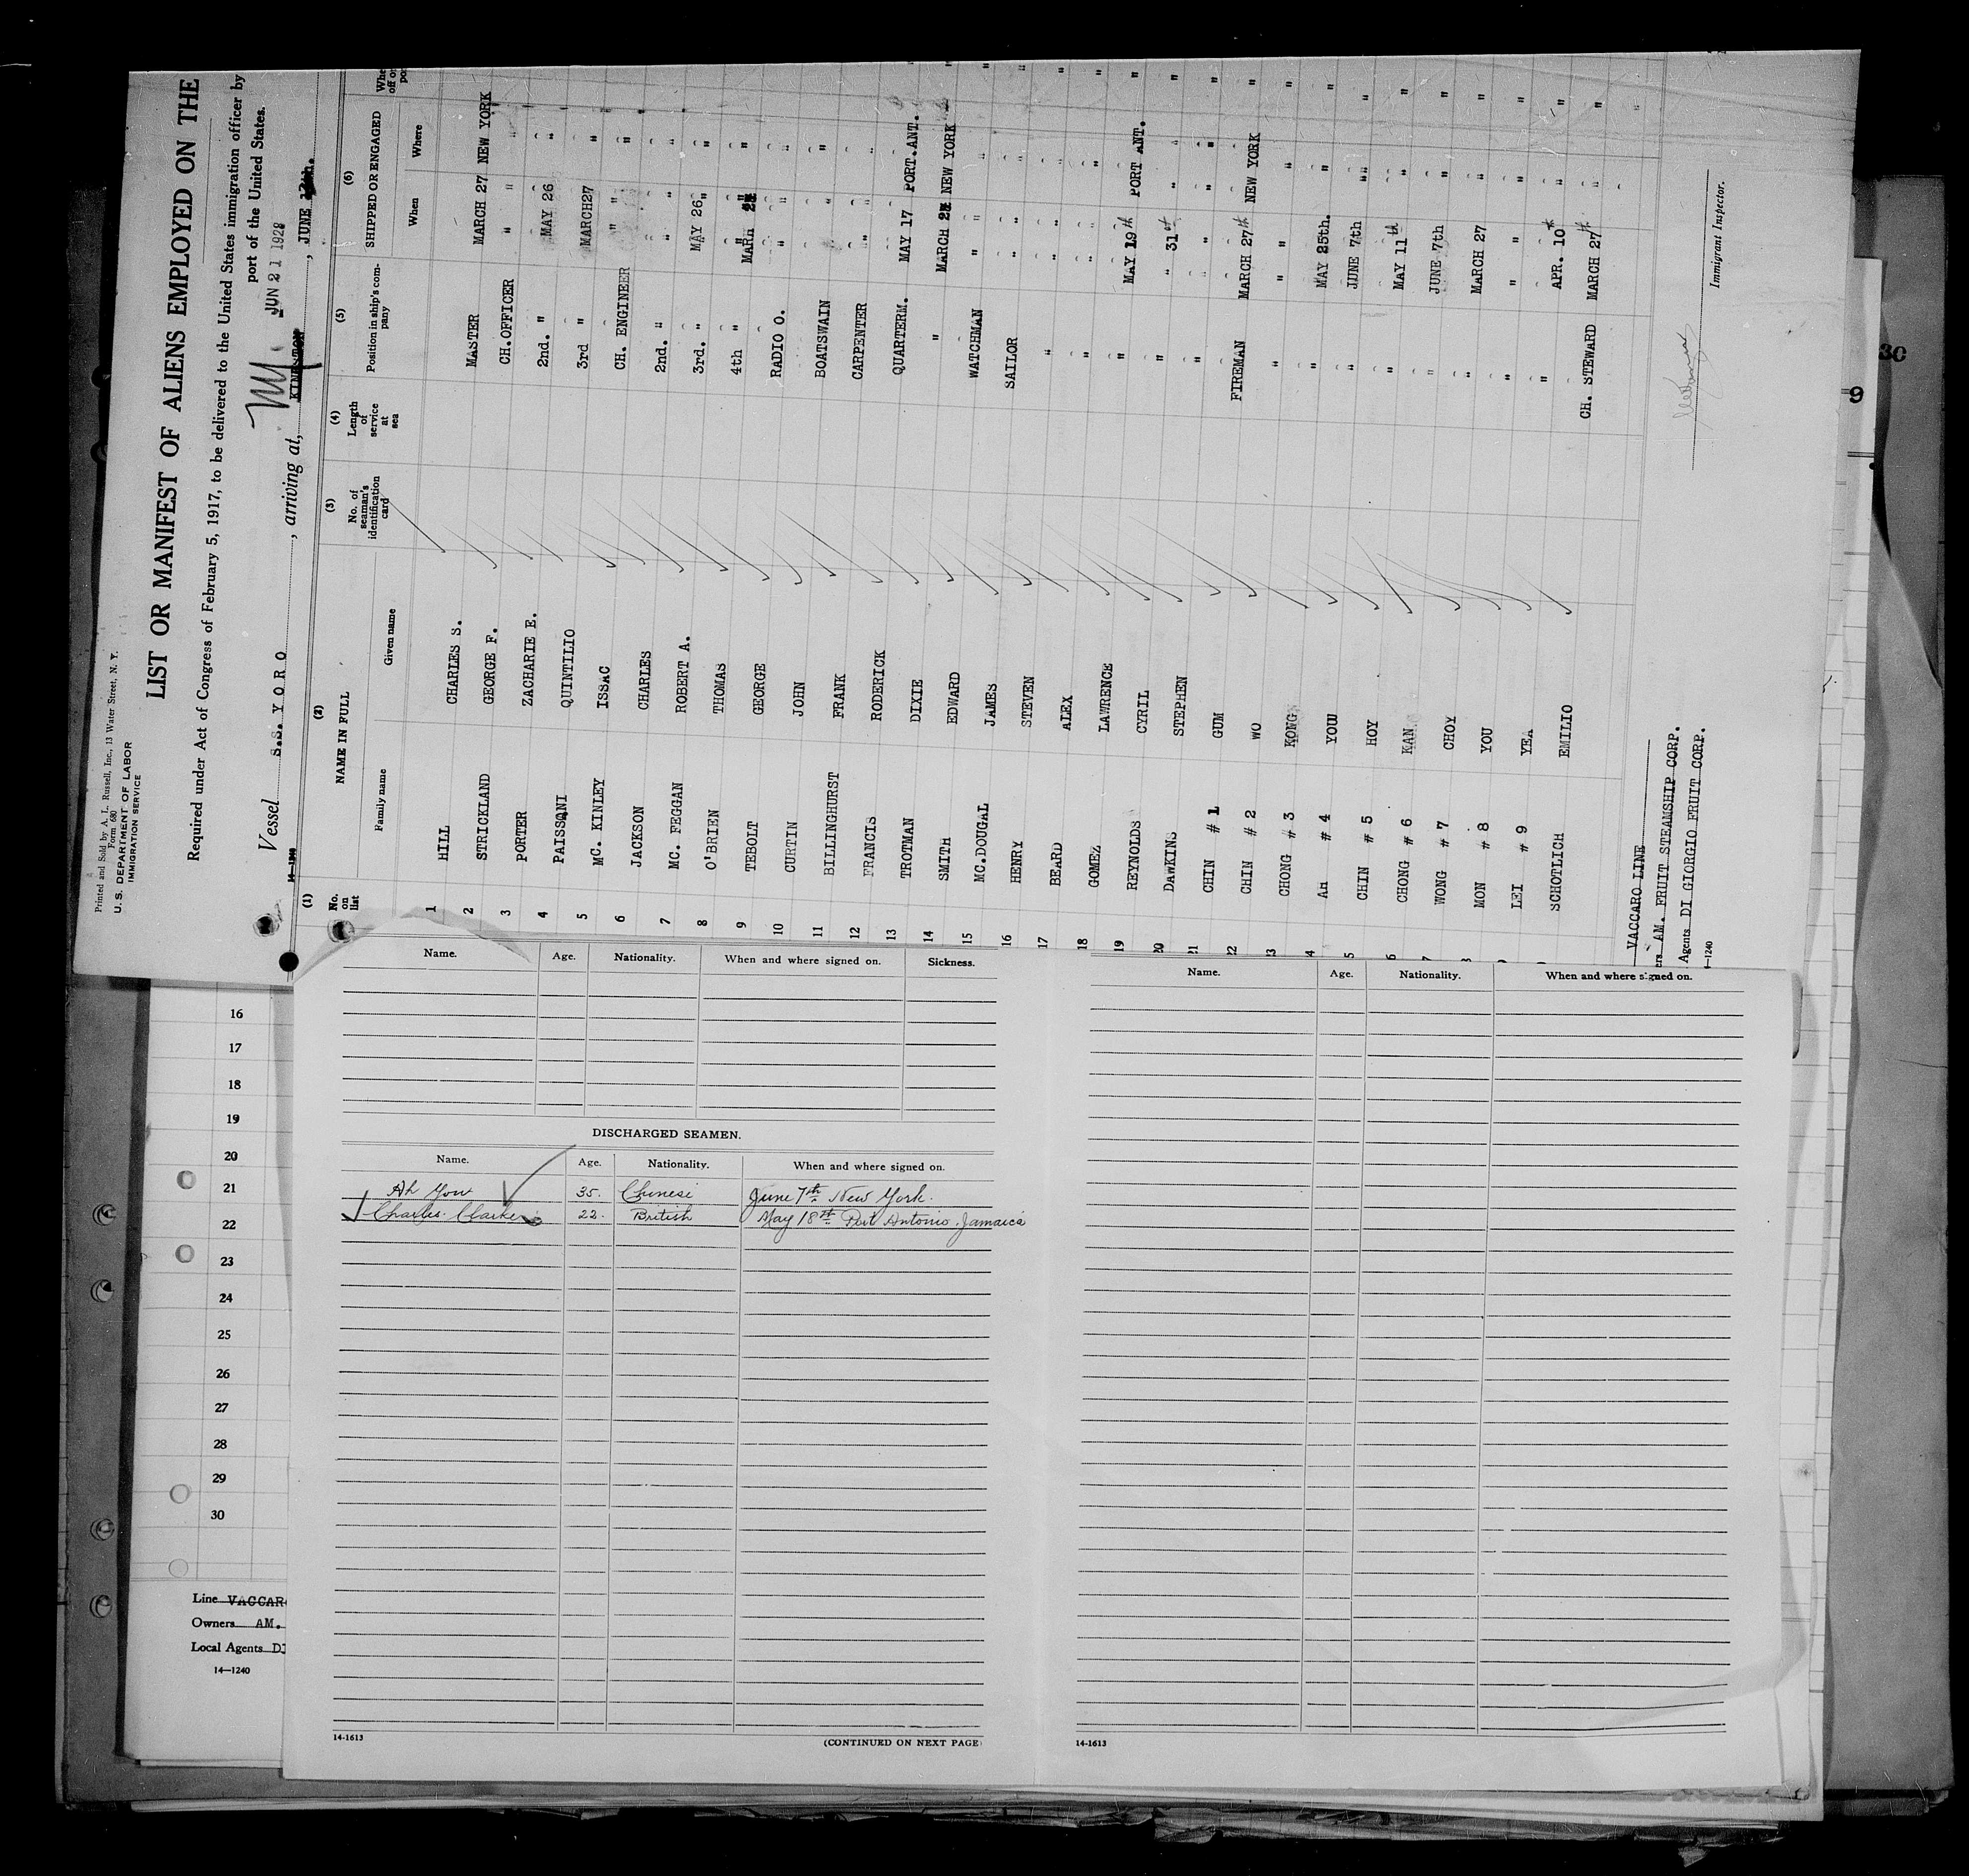 Printed and Sold by A. L. Russell, Inc., 13 Water Street, N. Y.
Form 680
U. S. DEPARTMENT OF LABOR
IMMIGRATION SERVICE
LIST OR MANIFEST OF ALIENS EMPLOYED ON THE
Required under Act of Congress of February 5, 1917, to be delivered to the United States immigration officer by
port of the United States.
JUN 21 1928
Vessel S.S. YORO, arriving at, KINGSTON, JUNE
14—1240
(1) (2) (3) (4) (5) (6)
No. on list NAME IN FULL No. of seaman's identification card Length of service at sea Position in ship's company SHIPPED OR ENGAGED
Family name Given name When Where
1 HILL CHARLES S. MASTER MARCH 27 NEW YORK
2 STRICKLAND GEORGE F. CH.OFFICER " "
3 PORTER ZACHARIE E. 2nd. " MAY 26 "
4 PAISSONI QUINTILIO 3rd " MARCH27 "
5 MC. KINLEY ISSAC CH. ENGINEER " "
6 JACKSON CHARLES 2nd. " " "
7 MC. FEGGAN ROBERT A. 3rd. " MAY 26 "
8 O'BRIEN THOMAS 4th " "
9 TEBOLT GEORGE RADIO O. " "
10 CURTIN JOHN BOATSWAIN " "
11 BILLINGHURST FRANK CARPENTER " "
12 FRANCIS RODERICK QUARTERM. MAY 17 PORT.ANT.
13 TROTMAN DIXIE " MARCH NEW YORK
14 SMITH EDWARD WATCHMAN " "
15 MC.DOUGAL JAMES SAILOR " "
16 HENRY STEVEN " " "
17 BEARD ALEX " " "
18 GOMEZ LAWRENCE " MAY 19th PORT ANT.
19 REYNOLDS CYRIL " " 31st "
20 DAWKINS STEPHEN " " "
21 CHIN # 1 GUM FIREMAN MARCH 27th NEW YORK
22 CHIN # 2 WO " " "
23 CHONG # 3 KONG " MAY 25th. "
4 AH # 4 YOW " JUNE 7th "
5 CHIN # 5 HOY " MAY 11th "
6 CHONG # 6 KAN " JUNE 7th "
7 WONG # 7 CHOY " MARCH 27 "
8 MON # 8 YOU " " "
9 LEI # 9 YEA " APR. 10th "
SCHOTLICH EMILIO CH. STEWARD MARCH 27th "
VACCARO LINE
ers AM. FRUIT STEAMSHIP CORP.
Agents DI GIORGIO FRUIT CORP.
14—1240
Immigrant Inspector.
30
9
Name. Age. Nationality. When and where signed on. Sickness.
DISCHARGED SEAMEN.
Name. Age. Nationality. When and where signed on.
Ah Yow 35. Chinese June 7th New York.
Charles Clarke 22. British May 18th Port Antonio Jamaica
14-1613
(CONTINUED ON NEXT PAGE)
Name. Age. Nationality. When and where signed on.
14-1613
16
17
18
19
20
21
22
23
24
25
26
27
28
29
30
Line VACCAR
Owners AM.
Local Agents DI
14—1240